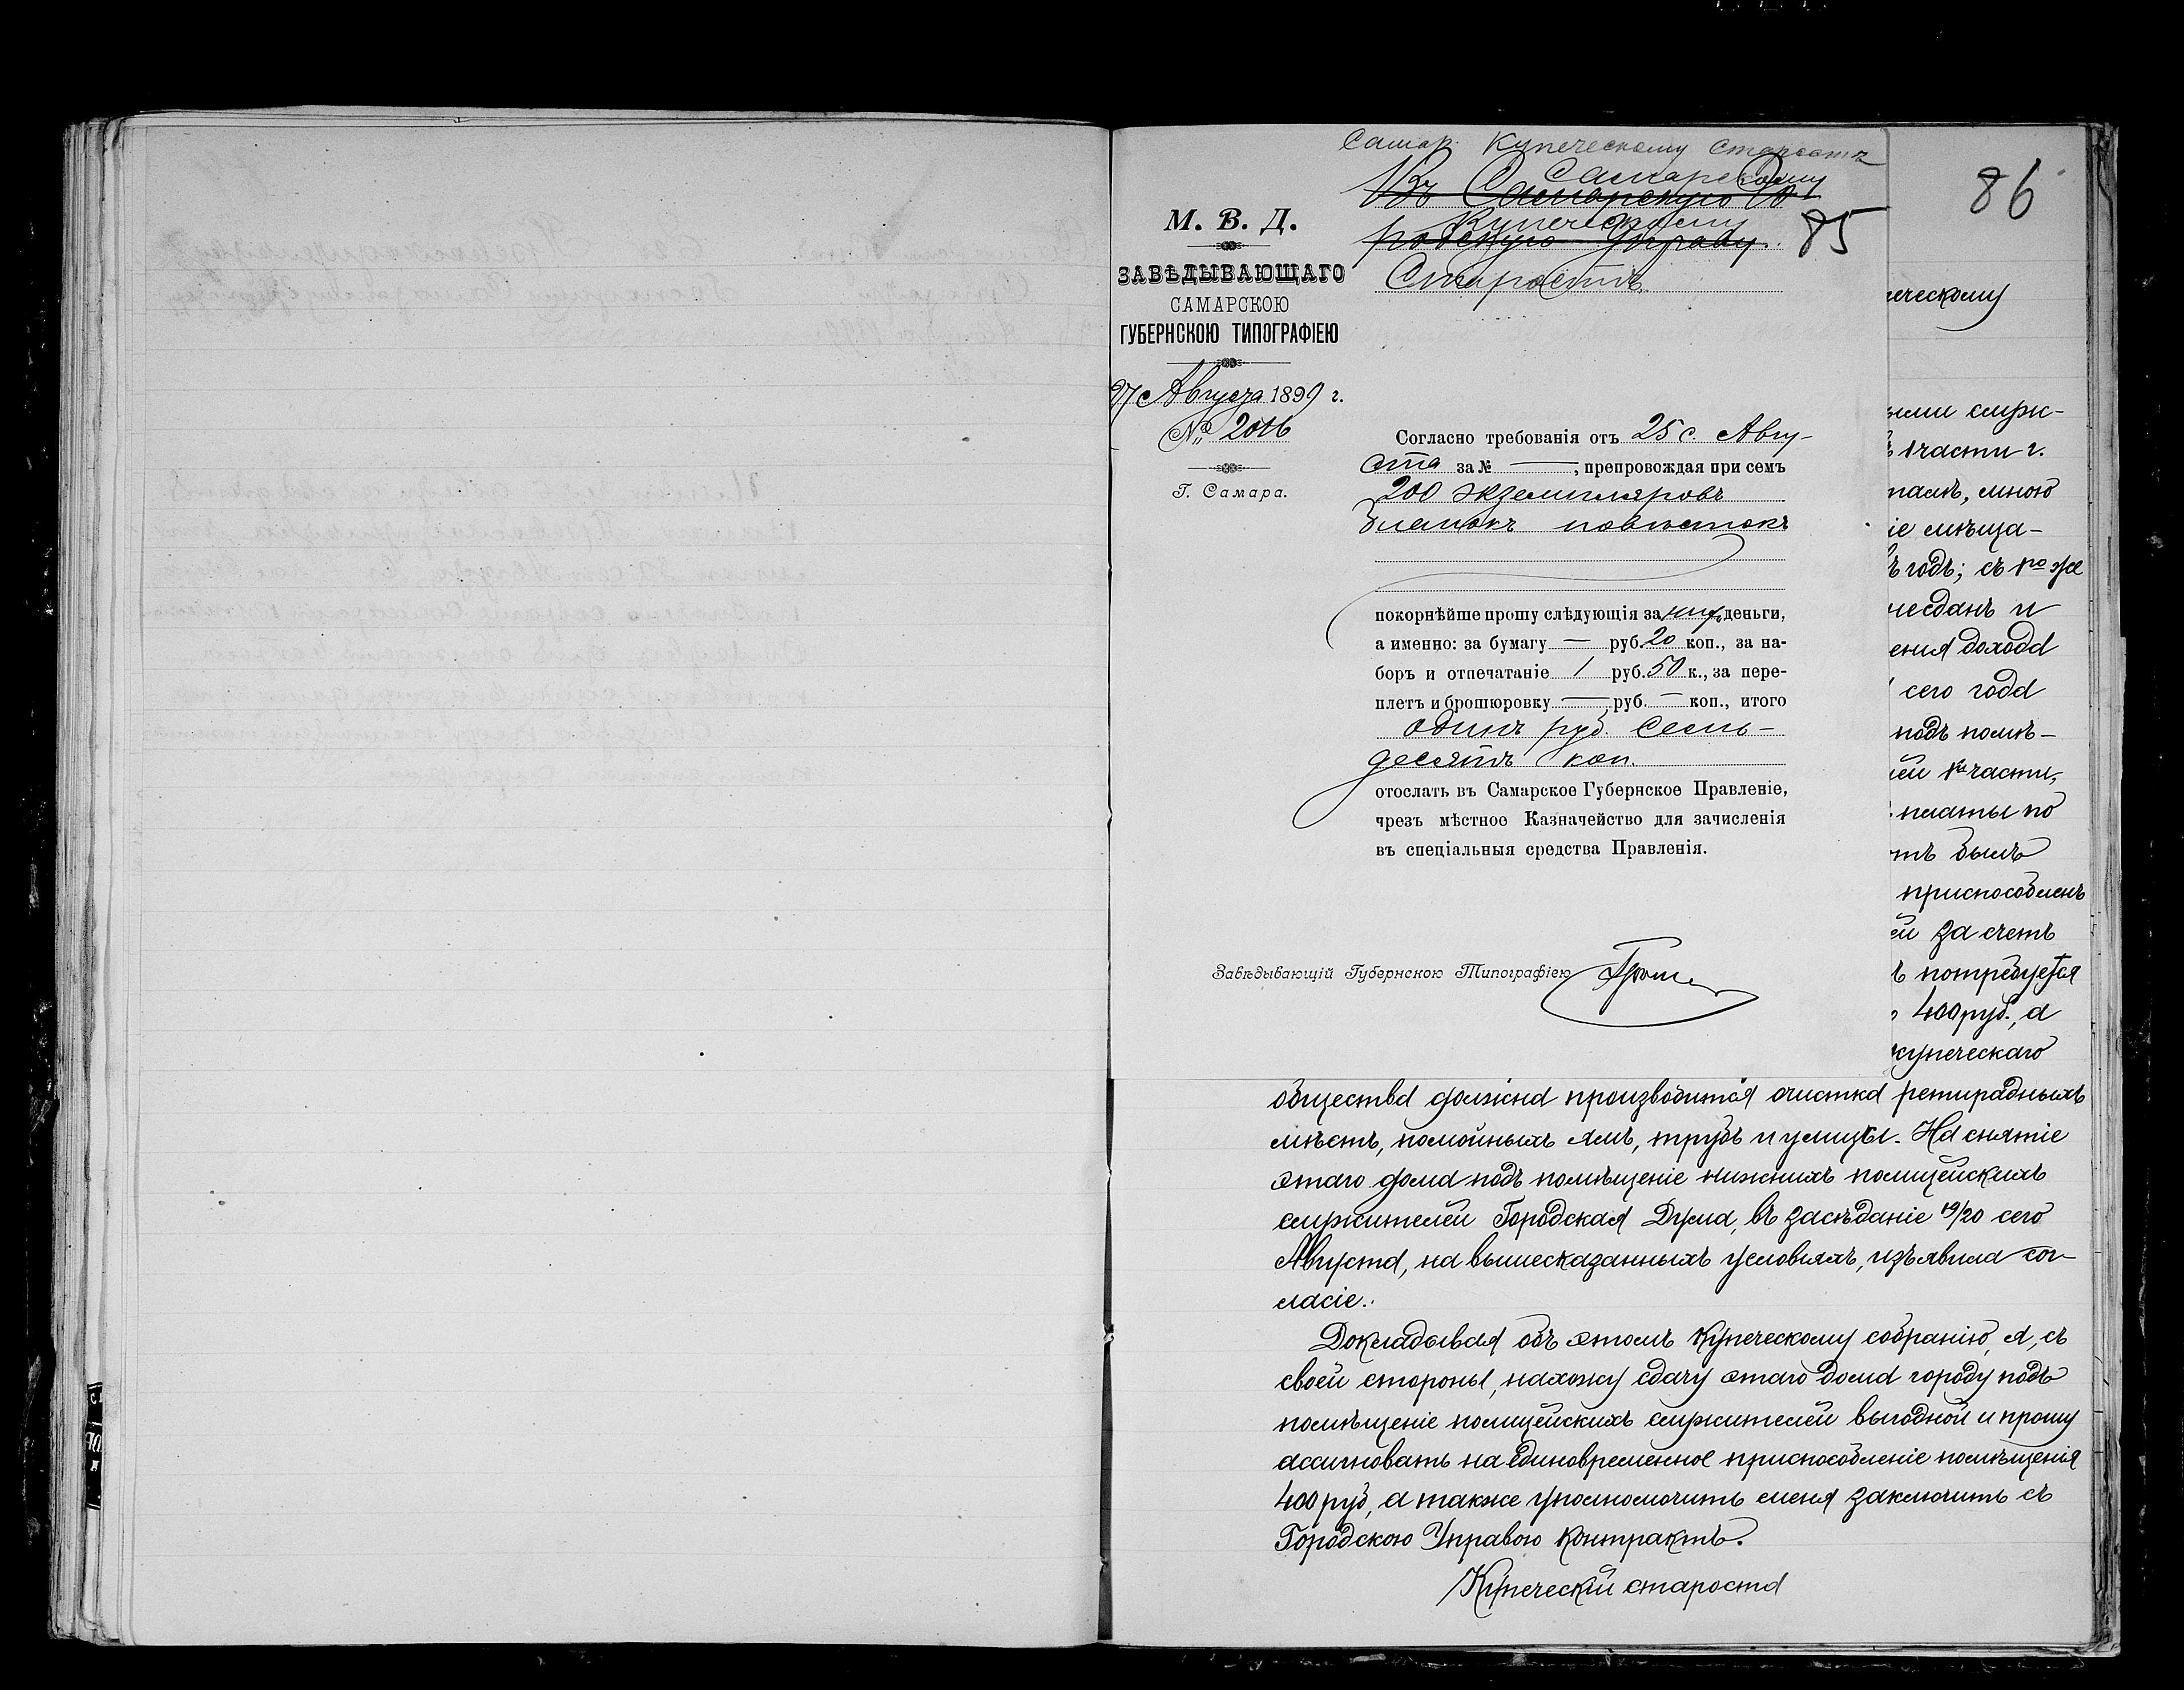 Самар. Купеческому Старостѣ
Самарскому
Въ Самарскую Го
Купеческому
родскую Управу.
Старостѣ
85
М. В. Д.
ЗАВѢДЫВАЮЩАГО
САМАРСКОЮ
ГУБЕРНСКОЮ ТИПОГРАФІЕЮ
27 Августа 1899 г.
№
Г. Самара.
Согласно требованія отъ 25 с. Авгу-
ста за № —, препровождая при семъ
200 экземпляровъ
бланокъ повѣстокъ
покорнѣйше прошу слѣдующія за нихъ деньги,
а именно: за бумагу — руб. 20 коп., за на-
боръ и отпечатаніе 1 руб. 50 к., за пере-
плетъ и брошюровку — руб. — коп., итого
одинъ руб. семь-
десятъ коп.
отослать въ Самарское Губернское Правленіе,
чрезъ мѣстное Казначейство для зачисленія
въ спеціальныя средства Правленія.
Завѣдывающій Губернскою Типографіею
86
ческому
ими служ-
ъ 1 части г.
памъ, мною
іе мѣща-
ъ годъ; съ 1го же
не сданъ и
енія дохода
сего года
подъ помѣ-
ей 1й части,
платы по
тъ былъ
приспособленъ
ей за счетъ
ъ потребуется
400 руб., а
купеческаго
общества должна производится очистка ретирадныхъ
мѣстъ, помойныхъ ямъ, трубъ и улицы. На снятіе
этаго дома подъ помѣщеніе нижнихъ полицейскихъ
служителей Городская Дума, въ засѣданіе 19/20 сего
Августа, на вышесказанныхъ условіяхъ, изъявила сог-
ласіе.
Докладывая объ этомъ Купеческому собранію, я, съ
своей стороны, нахожу сдачу этаго дома городу подъ
помѣщеніе полицейскихъ служителей выгодной и прошу
ассигновать на единовременное приспособленіе помѣщенія
400 руб, а также уполномочить меня заключить съ
Городскою Управою контрактъ.
Купеческій староста